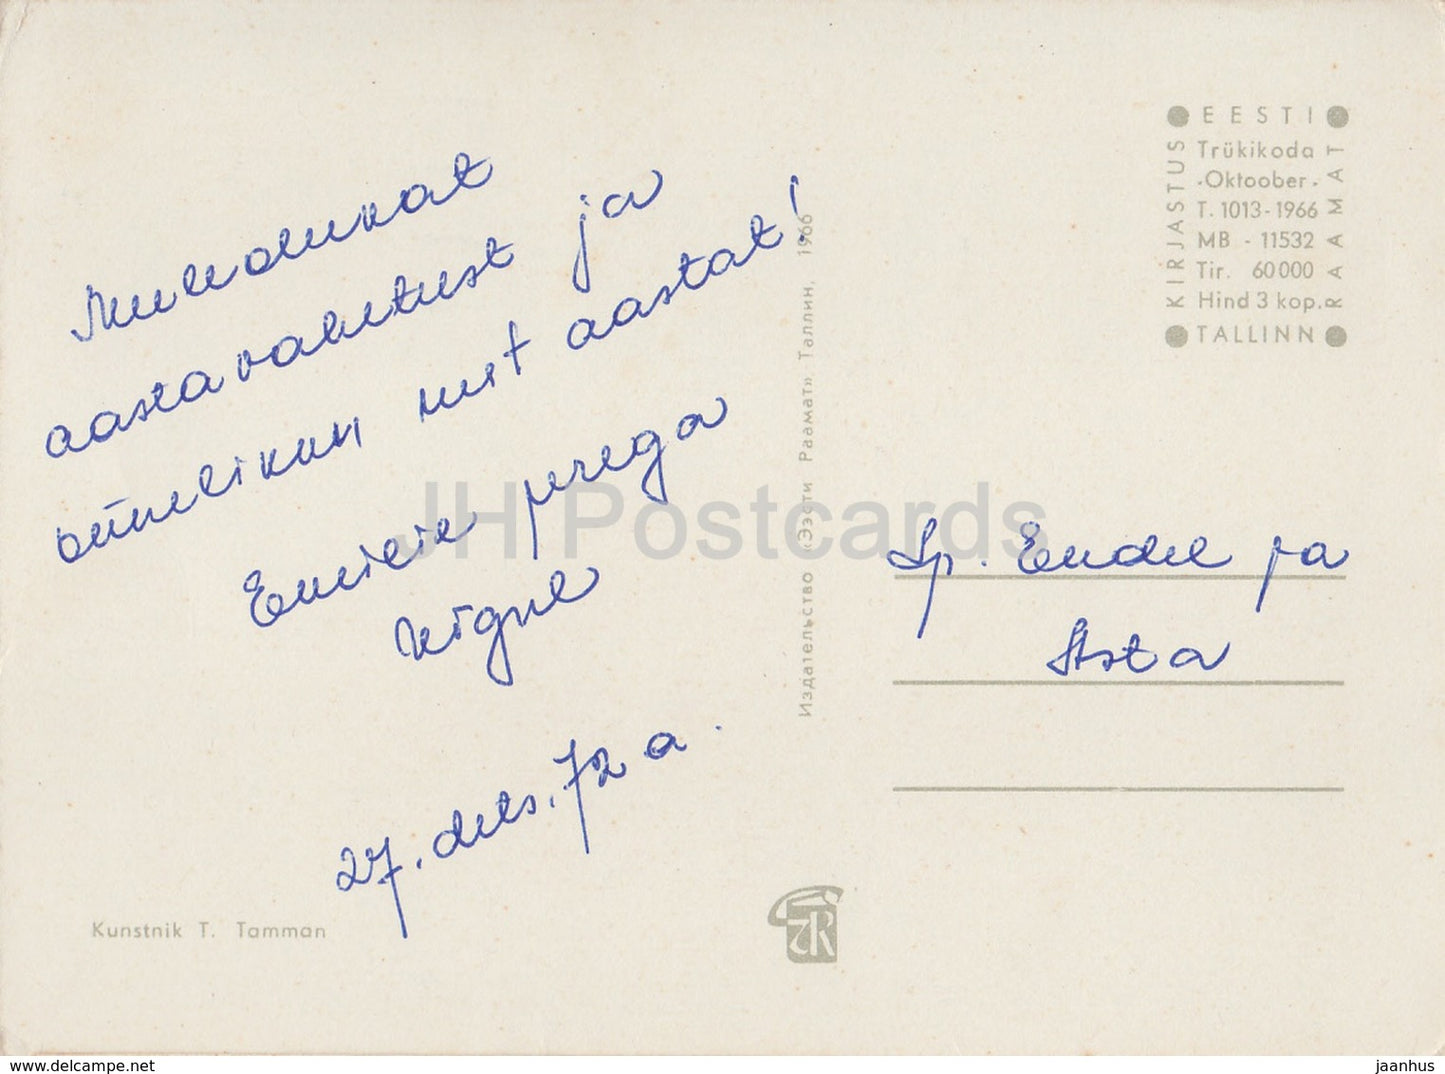 Meeldivat
aastavahetust ja
õnnelikku uut aastat!
perega
27. dets. 72 a.
Kunstnik T. Tamman
Издательство «Ээсти Раамат» Таллин, 1966
EESTI
KIRJASTUS
RAAMAT
Trükikoda
-Oktoober-
T. 1013-1966
MB - 11532
Tir. 60000
Hind 3 kop.
TALLINN
Sp. Endel ja
Asta
JH Postcards
www.delcampe.net
jaanhus